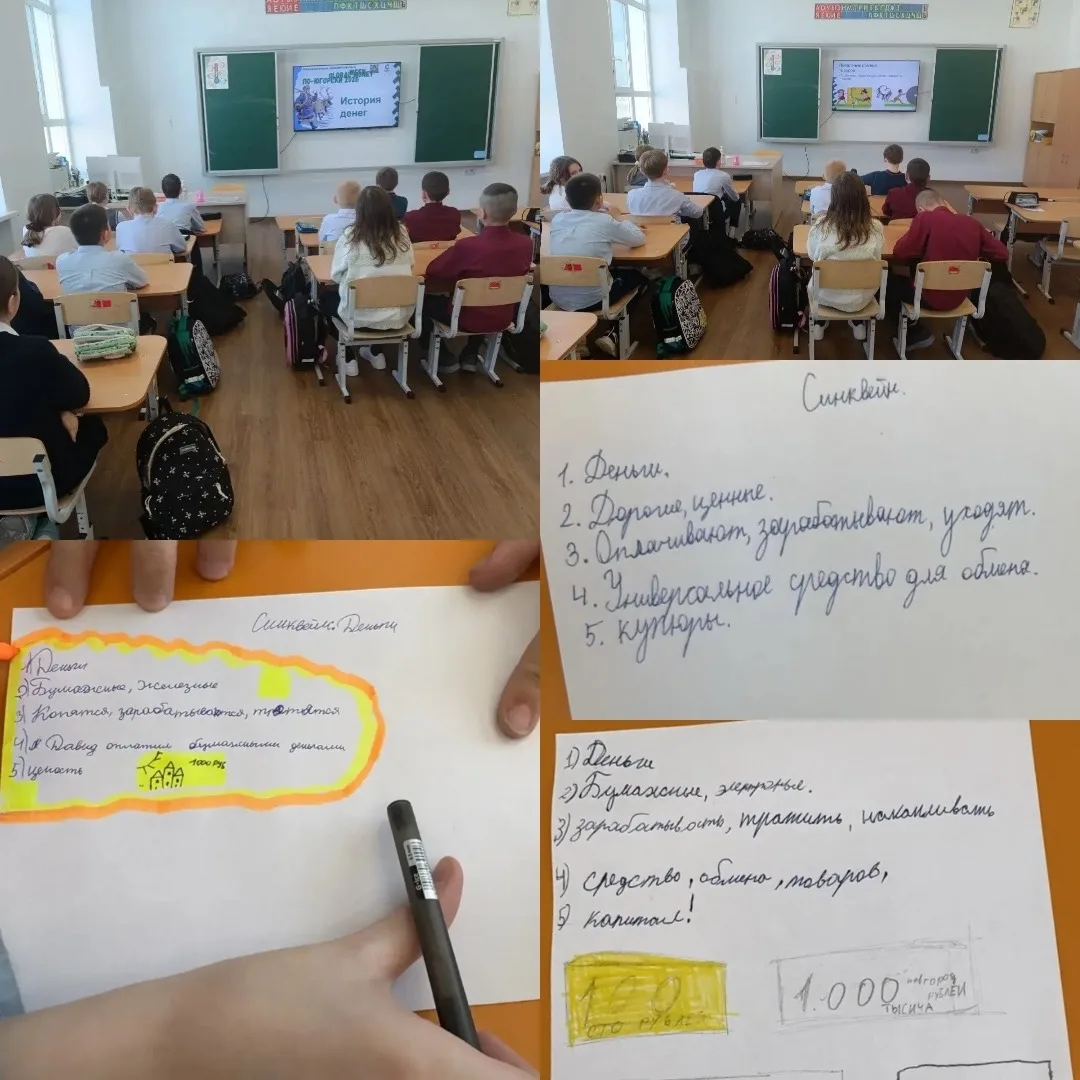 ПО-ЮГОРСКИ 2025
История
денег
Синквейн.
1. Деньги.
2. Дорогие, ценные.
3. Оплачивают, зарабатывают, уходят.
4. Универсальное средство для обмена.
5. купюры.
Синквейн. Деньги
1) Деньги
2) Бумажные, железные
3) Копятся, зарабатываются, тратятся
4) Давид оплатил бумажными деньгами
5) ценость
1000 РУБ
1) Деньги
2) Бумажные,
3) зарабатывость, тратить, накапливать
4) средство, обмена, товаров,
5) капитал!
100
СТО РУБЛЕЙ
1.000
РУБЛЕЙ
ТЫСИЧА